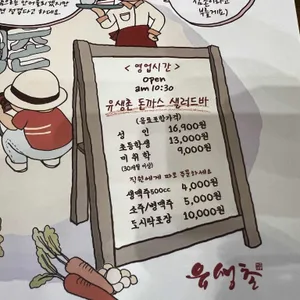 < 영업시간 >
open
am 10:30
유생촌 돈까스 샐러드바
(음료포함가격)
성 인 16,900원
초등학생 13,000원
미취학 9,000원
(30개월 이상)
직원에게 따로 주문하세요
생맥주500cc 4,000원
소주/병맥주 5,000원
도시락포장 10,000원
유생촌